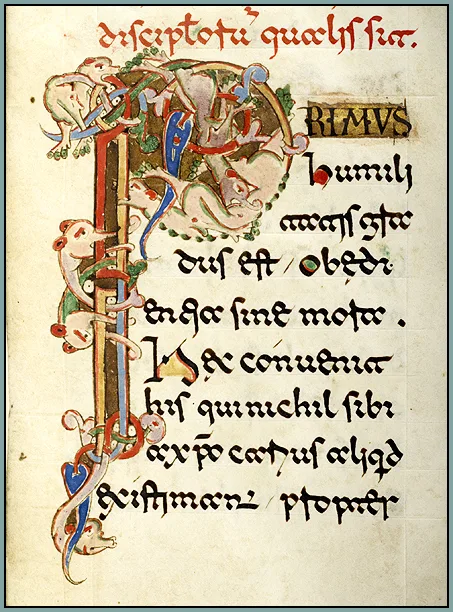 discipłorū qualis sit.
PRIMVS
humili
tatis gra
dus est / obedi
entia sine mora .
Hęc convenit
his qui nichil sibi
a xp̄o carius aliqd
existimant propter